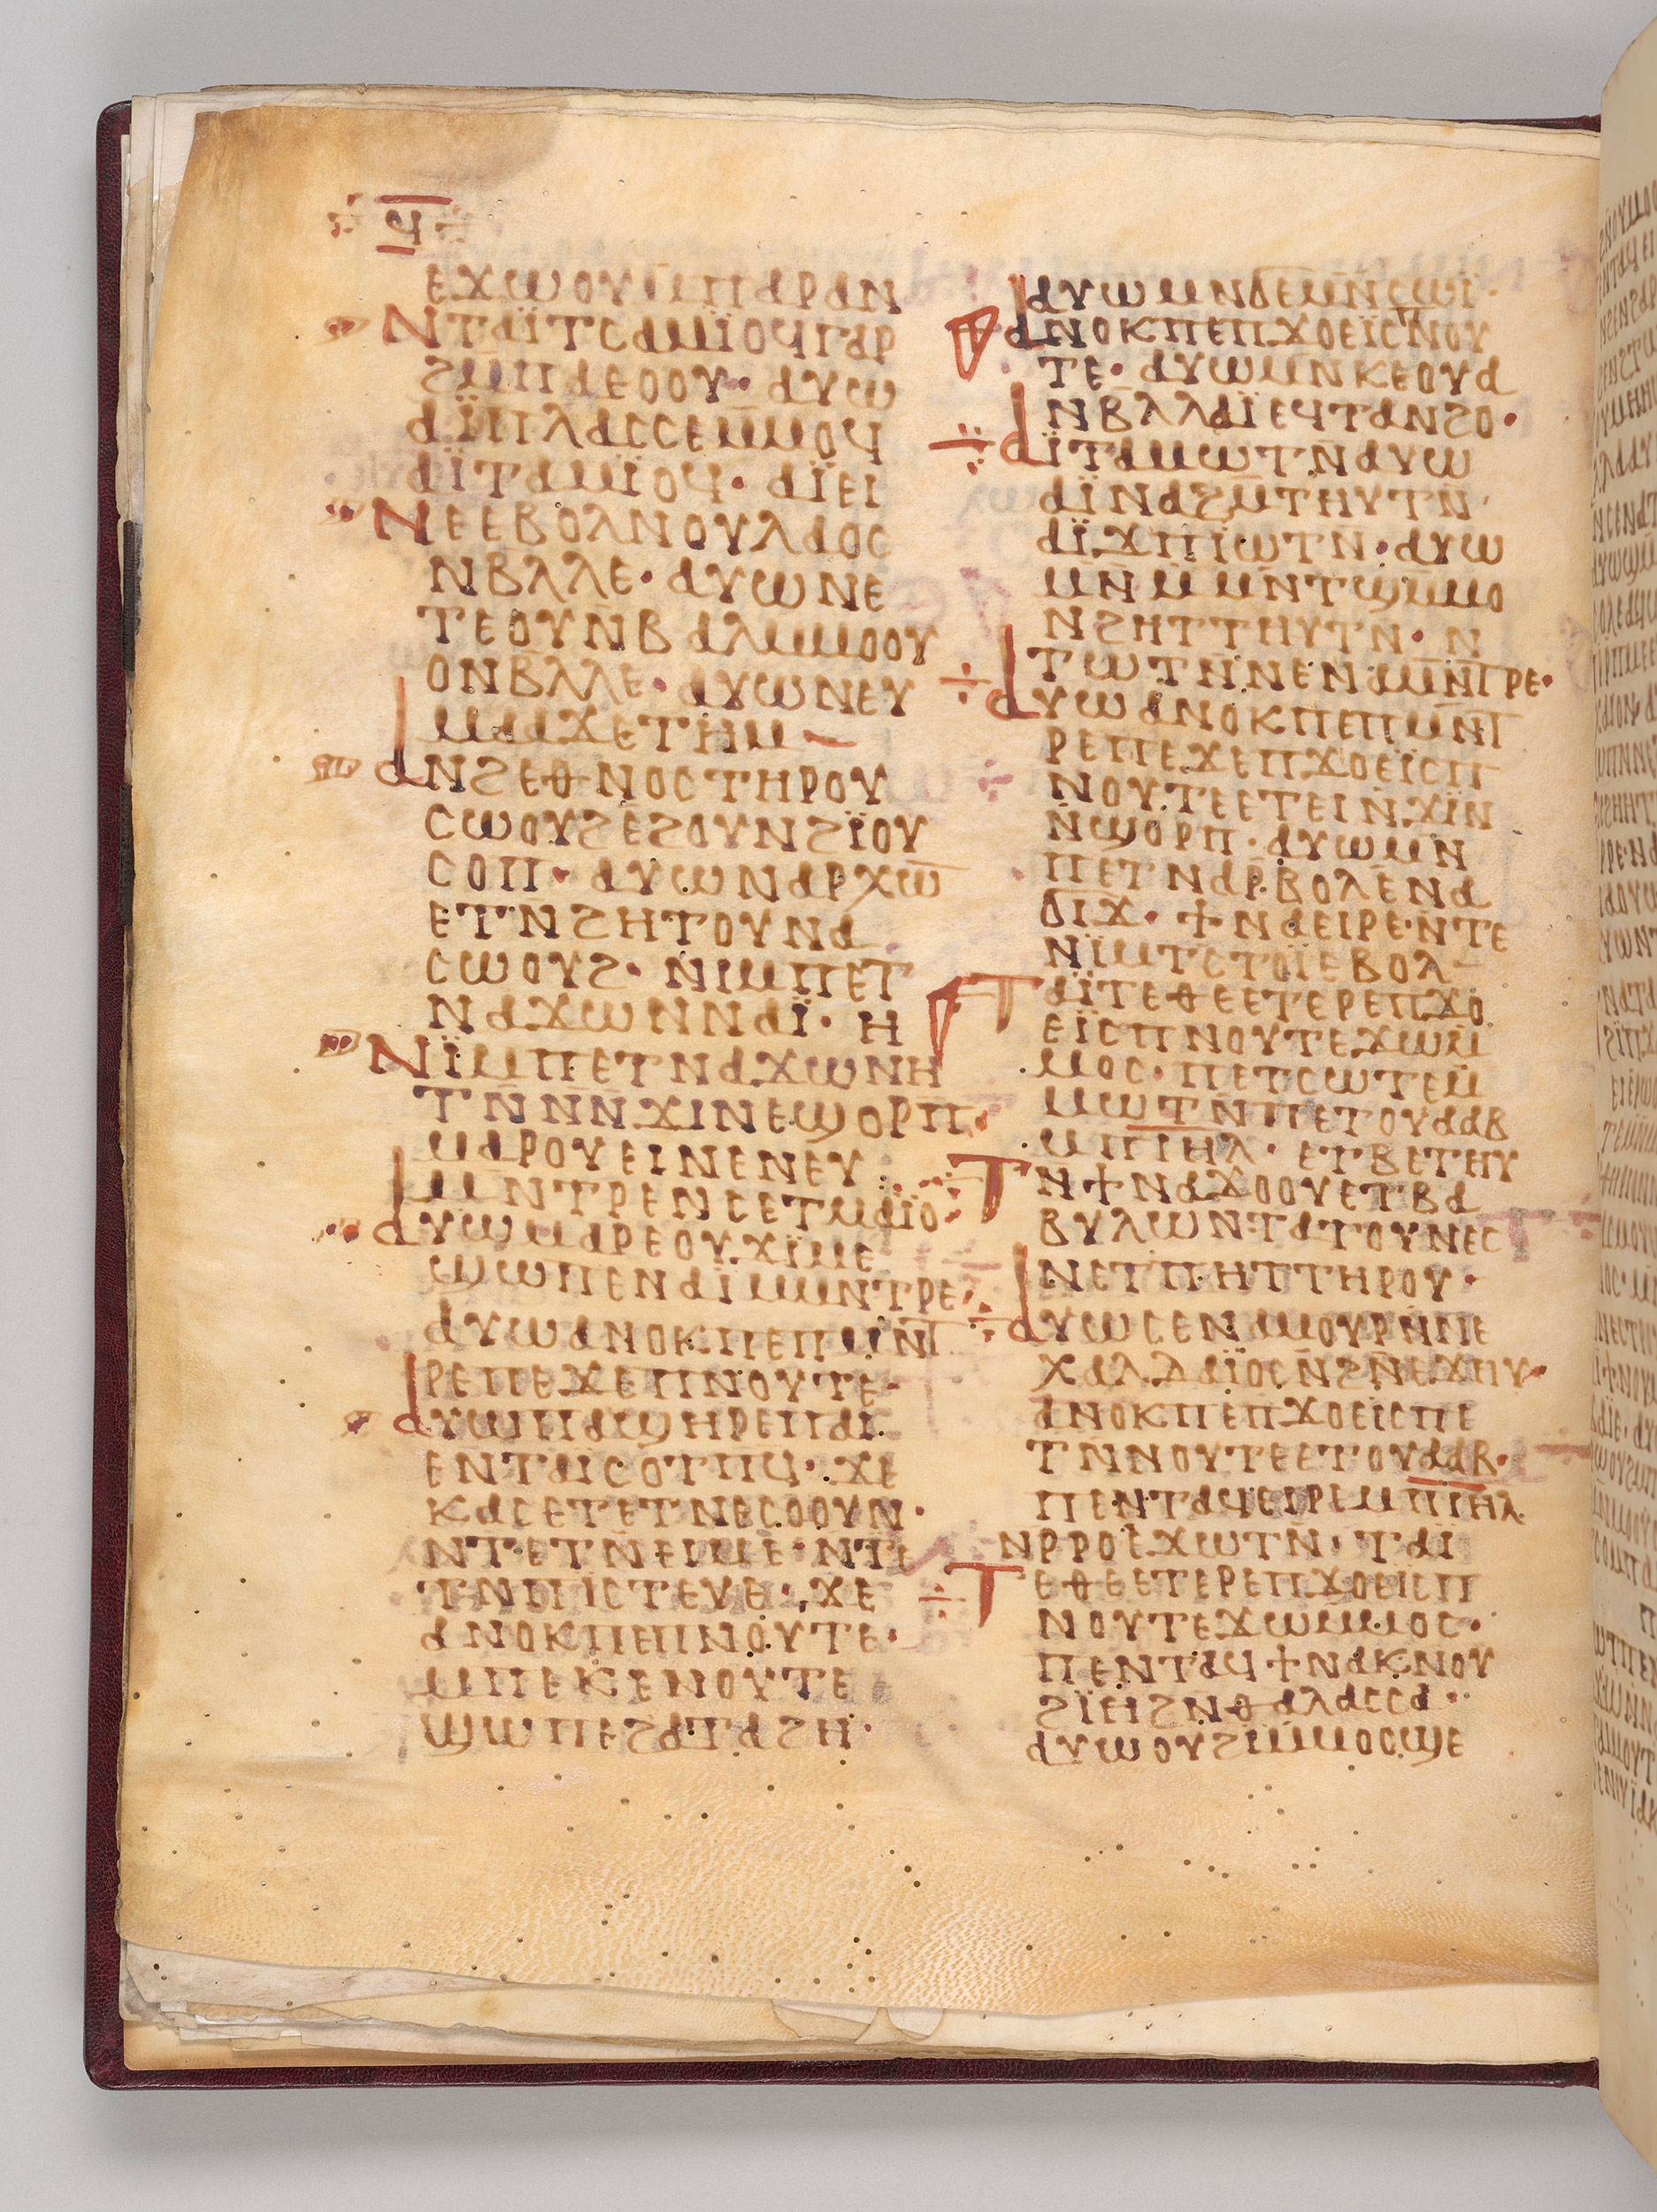 ϥ
ⲉϫⲱⲟⲩⲙ̄ⲡⲁⲣⲁⲛ
ⲛⲧⲁⲓ̈ⲧⲥⲁⲙⲓ̈ⲟϥⲅⲁⲣ
ϩⲙ̄ⲡⲁⲉⲟⲟⲩ· ⲁⲩⲱ
ⲁⲓ̈ⲡⲗⲁⲥⲥⲉⲙ̄ⲙⲟϥ
ⲁⲓ̈ⲧⲁⲙⲓ̈ⲟϥ· ⲁⲓ̈ⲉⲓ
ⲛⲉⲉⲃⲟⲗⲛⲟⲩⲗⲁⲟⲥ
ⲛⲃⲗⲗⲉ· ⲁⲩⲱⲛⲉ
ⲧⲉⲟⲩⲛ̄ⲃⲁⲗⲙⲙⲟⲟⲩ
ⲟⲛⲃ̄ⲗⲗⲉ· ⲁⲩⲱⲛⲉⲩ
ⲙⲁⲁϫⲉⲧⲏⲙ
ⲁⲛϩⲉⲑⲛⲟⲥⲧⲏⲣⲟⲩ
ⲥⲱⲟⲩϩⲉϩⲟⲩⲛϩⲓ̈ⲟⲩ
ⲥⲟⲡ· ⲁⲩⲱⲛⲁⲣⲭⲱ̅
ⲉⲧⲛ̄ϩⲏⲧⲟⲩⲛⲁ
ⲥⲱⲟⲩϩ· ⲛ̄ⲓⲙⲡⲉⲧ
ⲛⲁϫⲱⲛⲛⲁⲓ̈· ⲏ
ⲛⲓ̈ⲙⲡⲉⲧⲛⲁϫⲱⲛⲏ
ⲧⲛ̄ⲛ̄ⲛ̄ϫⲓⲛⲉϣⲟⲣⲡ·
ⲙⲁⲣⲟⲩⲉⲓⲛⲉⲛⲉⲩ
ⲙⲛ̄ⲧⲣⲉⲛⲥⲉⲧⲙⲁⲓ̈ⲟ
ⲁⲩⲱⲙⲁⲣⲉⲟⲩϫⲓ̈ⲙⲉ
ϣⲱⲡⲉⲛⲁⲓ̈ⲙⲙⲛⲧⲣⲉ
ⲁⲩⲱⲁⲛⲟⲕⲡⲉⲡⲙⲛ̄ⲧ
ⲣⲉⲡⲉϫⲉⲡⲛⲟⲩⲧⲉ·
ⲁⲩⲱⲡⲁϣⲏⲣⲉⲡⲁⲓ
ⲉⲛⲧⲁⲓⲥⲟⲧⲡϥ· ϫⲉ
ⲕⲁⲥⲉⲧⲉⲧⲛⲉⲥⲟⲟⲩⲛ·
ⲛⲧⲉⲧⲛ̄ⲉⲓⲙⲉ· ⲛⲧⲉ
ⲧⲛⲡⲓⲥⲧⲉⲩⲉ· ϫⲉ
ⲁⲛⲟⲕⲡⲉⲡⲛⲟⲩⲧⲉ·
ⲙⲡⲉⲕⲉⲛⲟⲩⲧⲉ
ϣⲱⲡⲉϩⲁⲧⲁϩⲏ·
ⲁⲩⲱⲙⲛϭⲉⲙⲛ̄ⲥⲱⲓ̈·
ⲁⲛⲟⲕⲡⲉⲡϫⲟⲉⲓ̈ⲥⲡⲛⲟⲩ
ⲧⲉ· ⲁⲩⲱⲙⲛ̄ⲕⲉⲟⲩⲁ
ⲛⲃⲗⲗⲁⲓ̈ⲉϥⲧⲁⲛϩⲟ·
ⲁⲓ̈ⲧⲁⲙⲱⲧⲛ̄ⲁⲩⲱ
ⲁⲓ̈ⲛⲁϩⲙ̄ⲧⲏⲩⲧⲛ̄
ⲁⲓ̈ϫⲡⲓ̈ⲱⲧⲛ̄· ⲁⲩⲱ
ⲙⲛ̄ⲙⲙⲛ̄ⲧϣⲙ̄ⲙⲟ
ⲛϩⲏⲧⲧⲏⲩⲧⲛ̄· ⲛ
ⲧⲱⲧⲛ̄ⲛⲉⲛⲁⲙⲛ̄ⲧⲣⲉ·
ⲁⲩⲱⲁⲛⲟⲕⲡⲉⲡⲙⲛ̄ⲧ
ⲣⲉⲡⲉϫⲉⲡϫⲟⲉⲓ̈ⲥⲡ
ⲛⲟⲩⲧⲉⲉⲧⲉⲓⲛ̄ϫⲓ̈ⲛ
ⲛ̄ϣⲟⲣⲡ· ⲁⲩⲱⲙⲛ
ⲡⲉⲧⲛⲁⲣ̄ⲃⲟⲗⲉⲛⲁ
ϭⲓϫ· ϯⲛⲁⲉⲓⲣⲉ·ⲛ̄ⲧⲉ
ⲛⲓ̈ⲙⲧⲥⲧⲟⲓ̈ⲉⲃⲟⲗ
ⲧⲁⲓ̈ⲧⲉⲑⲉⲉⲧⲉⲣⲉⲡϫⲟ
ⲉⲓ̈ⲥⲡⲛⲟⲩⲧⲉϫⲱⲙ̄
ⲙⲟⲥ· ⲡⲉⲧⲥⲱⲧⲉⲙ̄
ⲙⲱⲧⲛ̄ⲡⲉⲧⲟⲩⲁⲁⲃ
ⲙⲡⲓⲏⲗ· ⲉⲧⲃⲉⲧⲏⲩ
ⲧⲛϯⲛⲁϫⲟⲟⲩⲉⲧⲃⲁ
ⲃⲩⲗⲱⲛ·ⲧⲁⲧⲟⲩⲛⲉⲥ
ⲛⲉⲧⲡⲏⲧⲧⲏⲣⲟⲩ·
ⲁⲩⲱⲥⲉⲛⲁⲙⲟⲩⲣⲛ̄ⲛⲉ
ⲭⲁⲗⲇⲁⲓ̈ⲟⲥⲛ̄ϩⲛ̄ⲉϫⲏⲩ·
ⲁⲛⲟⲕⲡⲉⲡϫⲟⲉⲓ̈ⲥⲡⲉ
ⲧⲛⲛⲟⲩⲧⲉⲉⲧⲟⲩⲁⲁⲃ·
ⲡⲉⲛⲧⲁϥⲉⲓⲣⲉⲙⲡⲓⲏⲗ
ⲛⲣⲣⲟⲉϫⲱⲧⲛ· ⲧⲁⲓ
ⲧⲉⲑⲉⲉⲧⲉⲣⲉⲡϫⲟⲉⲓⲥⲡ
ⲛⲟⲩⲧⲉϫⲱⲙⲙⲟⲥ·
ⲡⲉⲛⲧⲁϥϯⲛⲁⲕⲛⲟⲩ
ϩⲓ̈ⲉⲓϩⲛⲑⲁⲗⲁⲥⲥⲁ·
ⲁⲩⲱⲟⲩϩⲓⲙⲙⲟⲟϣⲉ